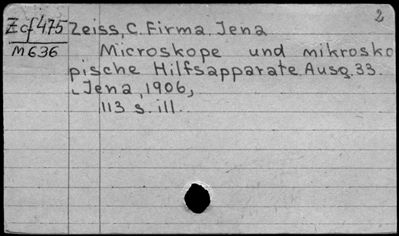 2
Zcf 475 Zeiss, C. Firma. Jena
M636 Microskope und mikrosko
pische Hilfsapparate. Ausg. 33.
Jena, 1906,
113 s. ill.